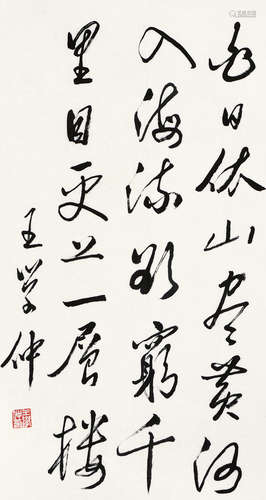 白日依山尽黄河
入海流欲窮千
里目更上一層楼
王学仲